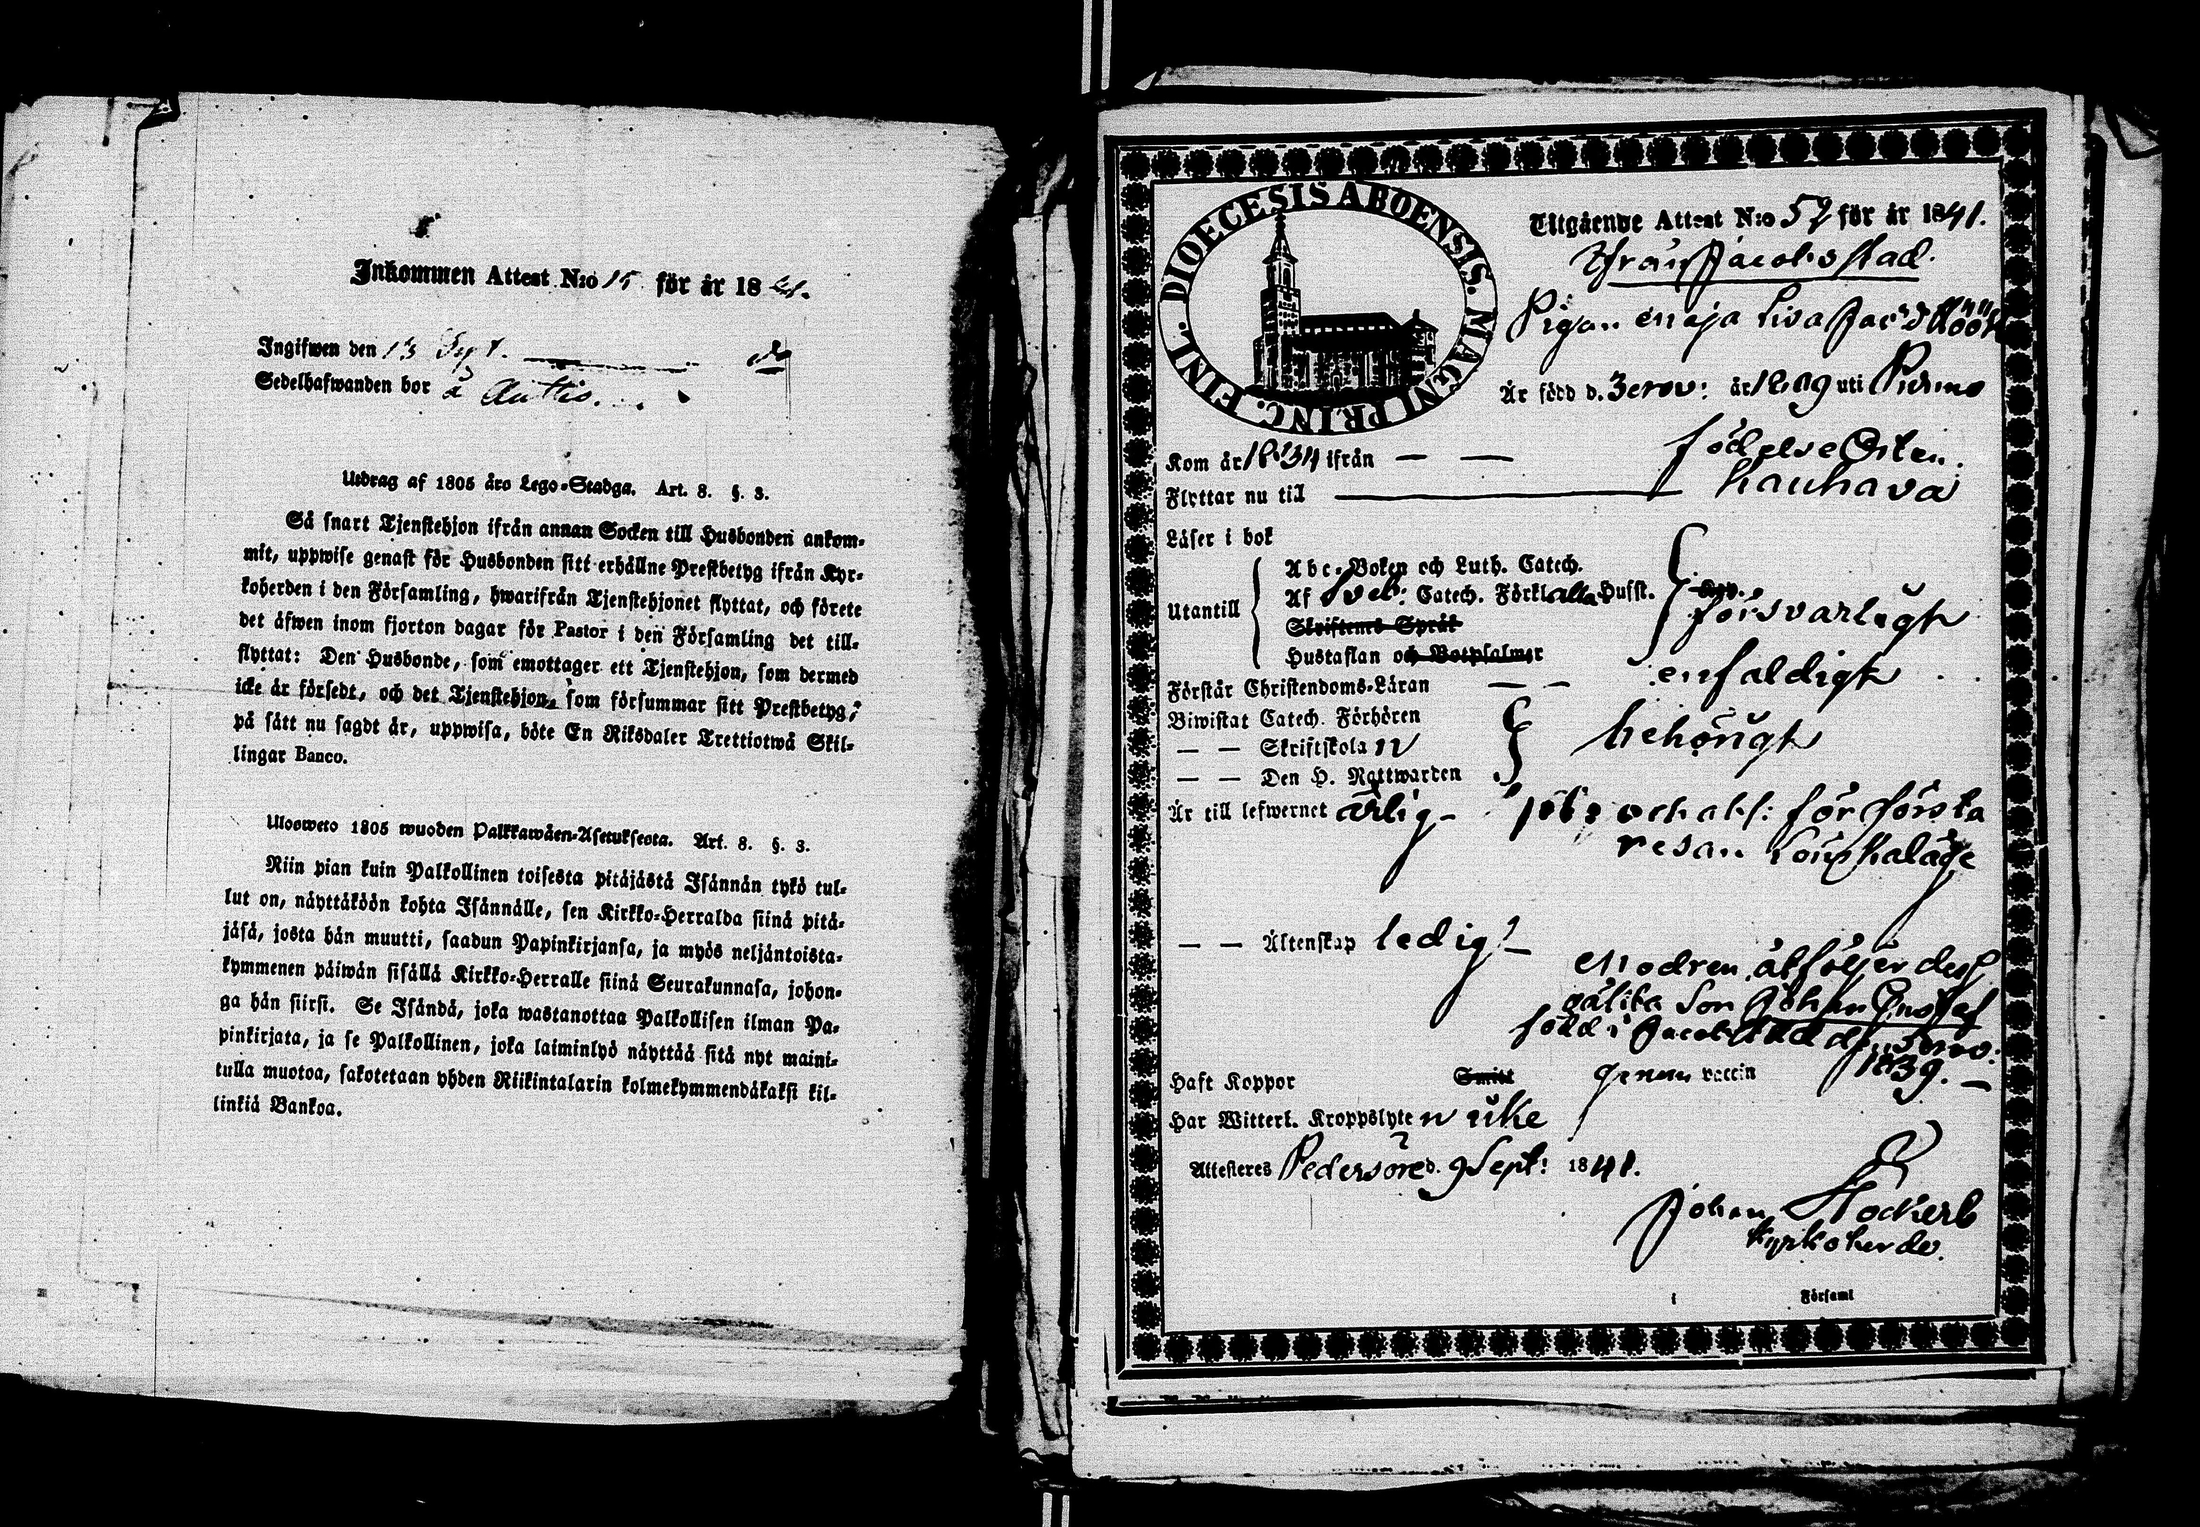 Inkommen Attest N:o 15 för år 1841.
Ingifwen den 13 Sept.
Sedelhafwanden bor å Auttis.
Utdrag af 1805 års Lego-Stadga. Art. 8. §. 3.
Så snart Tjenstehjon ifrån annan Socken till Husbonden ankom-
mit, uppwise genast för Husbonden sitt erhållne Prestbetyg ifrån Kyr-
koherden i den Församling, hwarifrån Tjenstehjonet flyttat, och förete
det äfwen inom fjorton dagar för Pastor i den Församling det till-
flyttat: Den Husbonde, som emottager ett Tjenstehjon, som dermed
icke är försedt, och det Tjenstehjon, som försummar sitt Prestbetyg,
på sätt nu sagdt är, uppwisa, böte En Riksdaler Trettiotwå Skil-
lingar Banco.
Ulosweto 1805 wuoden Palkkawäen-Asetuksesta. Art. 8. §. 3.
Niin pian kuin Palkollinen toisesta pitäjästä Isännän tykö tul-
lut on, näyttäköön kohta Isännälle, sen Kirkko-Herralda siinä pitä-
jäsä, josta hän muutti, saadun Papinkirjansa, ja myös neljäntoista-
kymmenen päiwän sisällä Kirkko-Herralle siinä Seurakunnasa, johon-
ga hän siirsi. Se Isändä, joka wastanottaa Palkollisen ilman Pa-
pinkirjata, ja se Palkollinen, joka laiminlyö näyttää sitä nyt maini-
tulla muotoa, sakotetaan yhden Riikintalarin kolmekymmendäkaksi kil-
linkiä Bankoa.
DIOECESIS ABOENSIS. MAGNI PRINC. FINL.
Utgående Attest N:o 57 för år 1841.
Ifrån Jacobsstad.
Pigan Maja Lisa Jac:d Höök
Är född d. 3 Nov: år 1809 uti Purmo
Kom år 1834 ifrån — — födelse Orten.
Flyttar nu till Kauhava
Läser i bok
Utantill
Abc-Boken och Luth. Catech.
Af Sveb: Catech. Förkl. alla Husst.
Skriftens Språk
Hustaflan och Botpsalmer
försvarligt
Förstår Christendoms-Läran — — enfaldigt
Biwistat Catech. Förhören
— — Skriftskolan
— — Den H. Nattwarden
behörigt
Är till lefwernet ärlig – och abs: för första
resan Lönskaläge
— — Äktenskap ledig
Modren åtföljer dess
oäkta Son Johan Gustaf
född i Jacobstad d. Nov:
1839.
Haft Koppor Smitt genom vaccin
Har Witterl. Kroppslyte n icke
Attesteres Pedersöre d. 9 Sept: 1841.
Johan Hockerb
Kyrkoherde.
i Församl